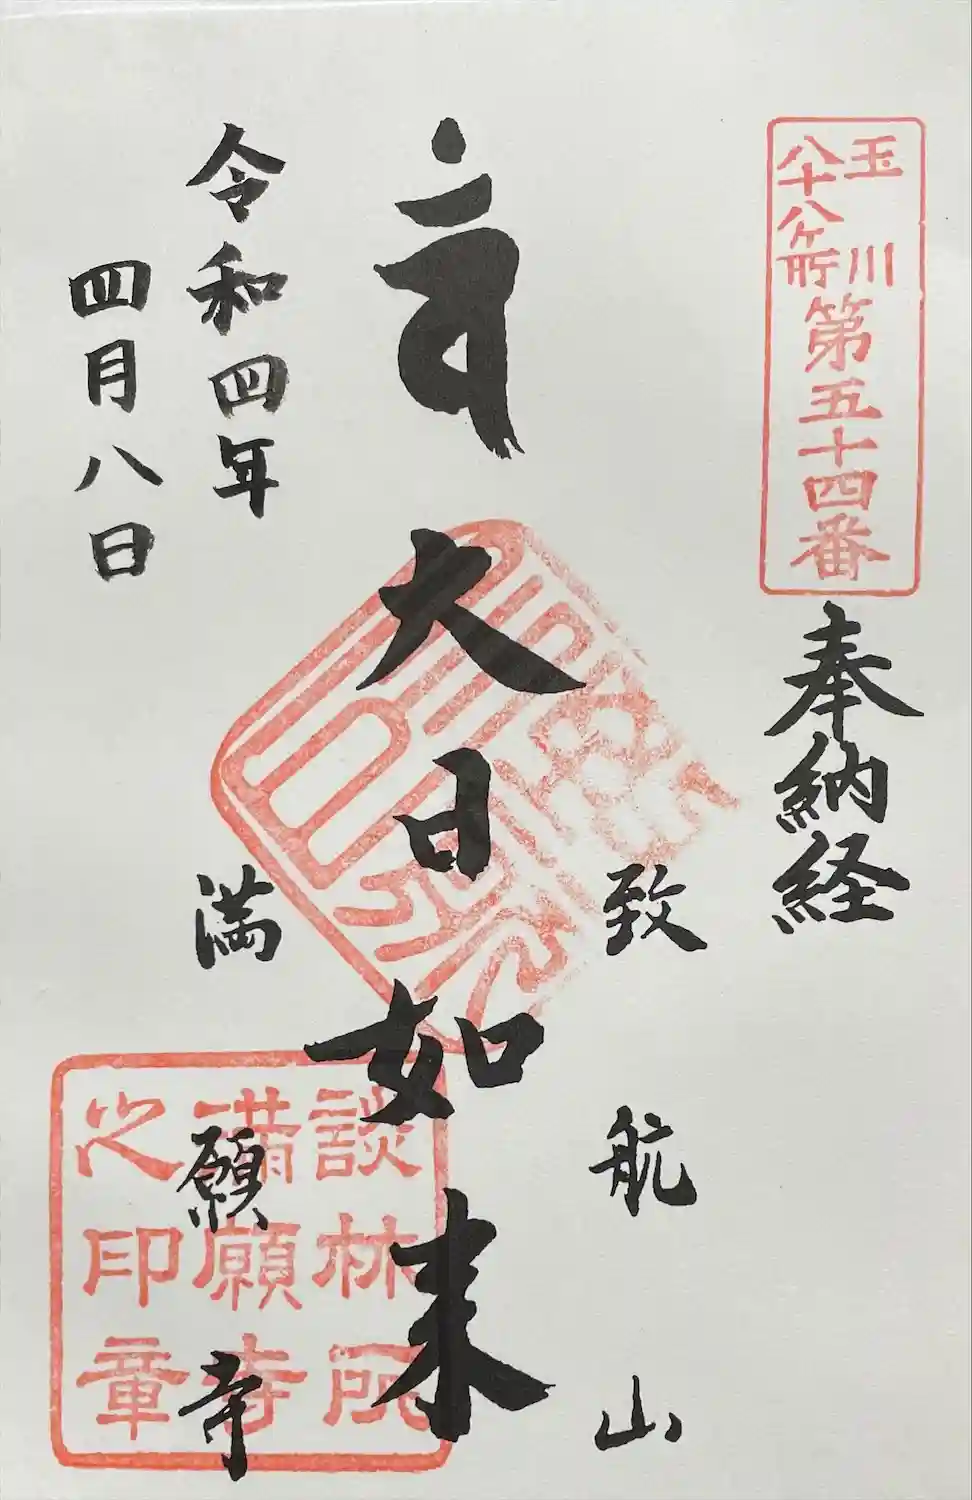 玉川
八十八ヶ所
第五十四番
奉納経
致航山
大日如来
満願寺
令和四年
四月八日
談林院
満願寺
之印章